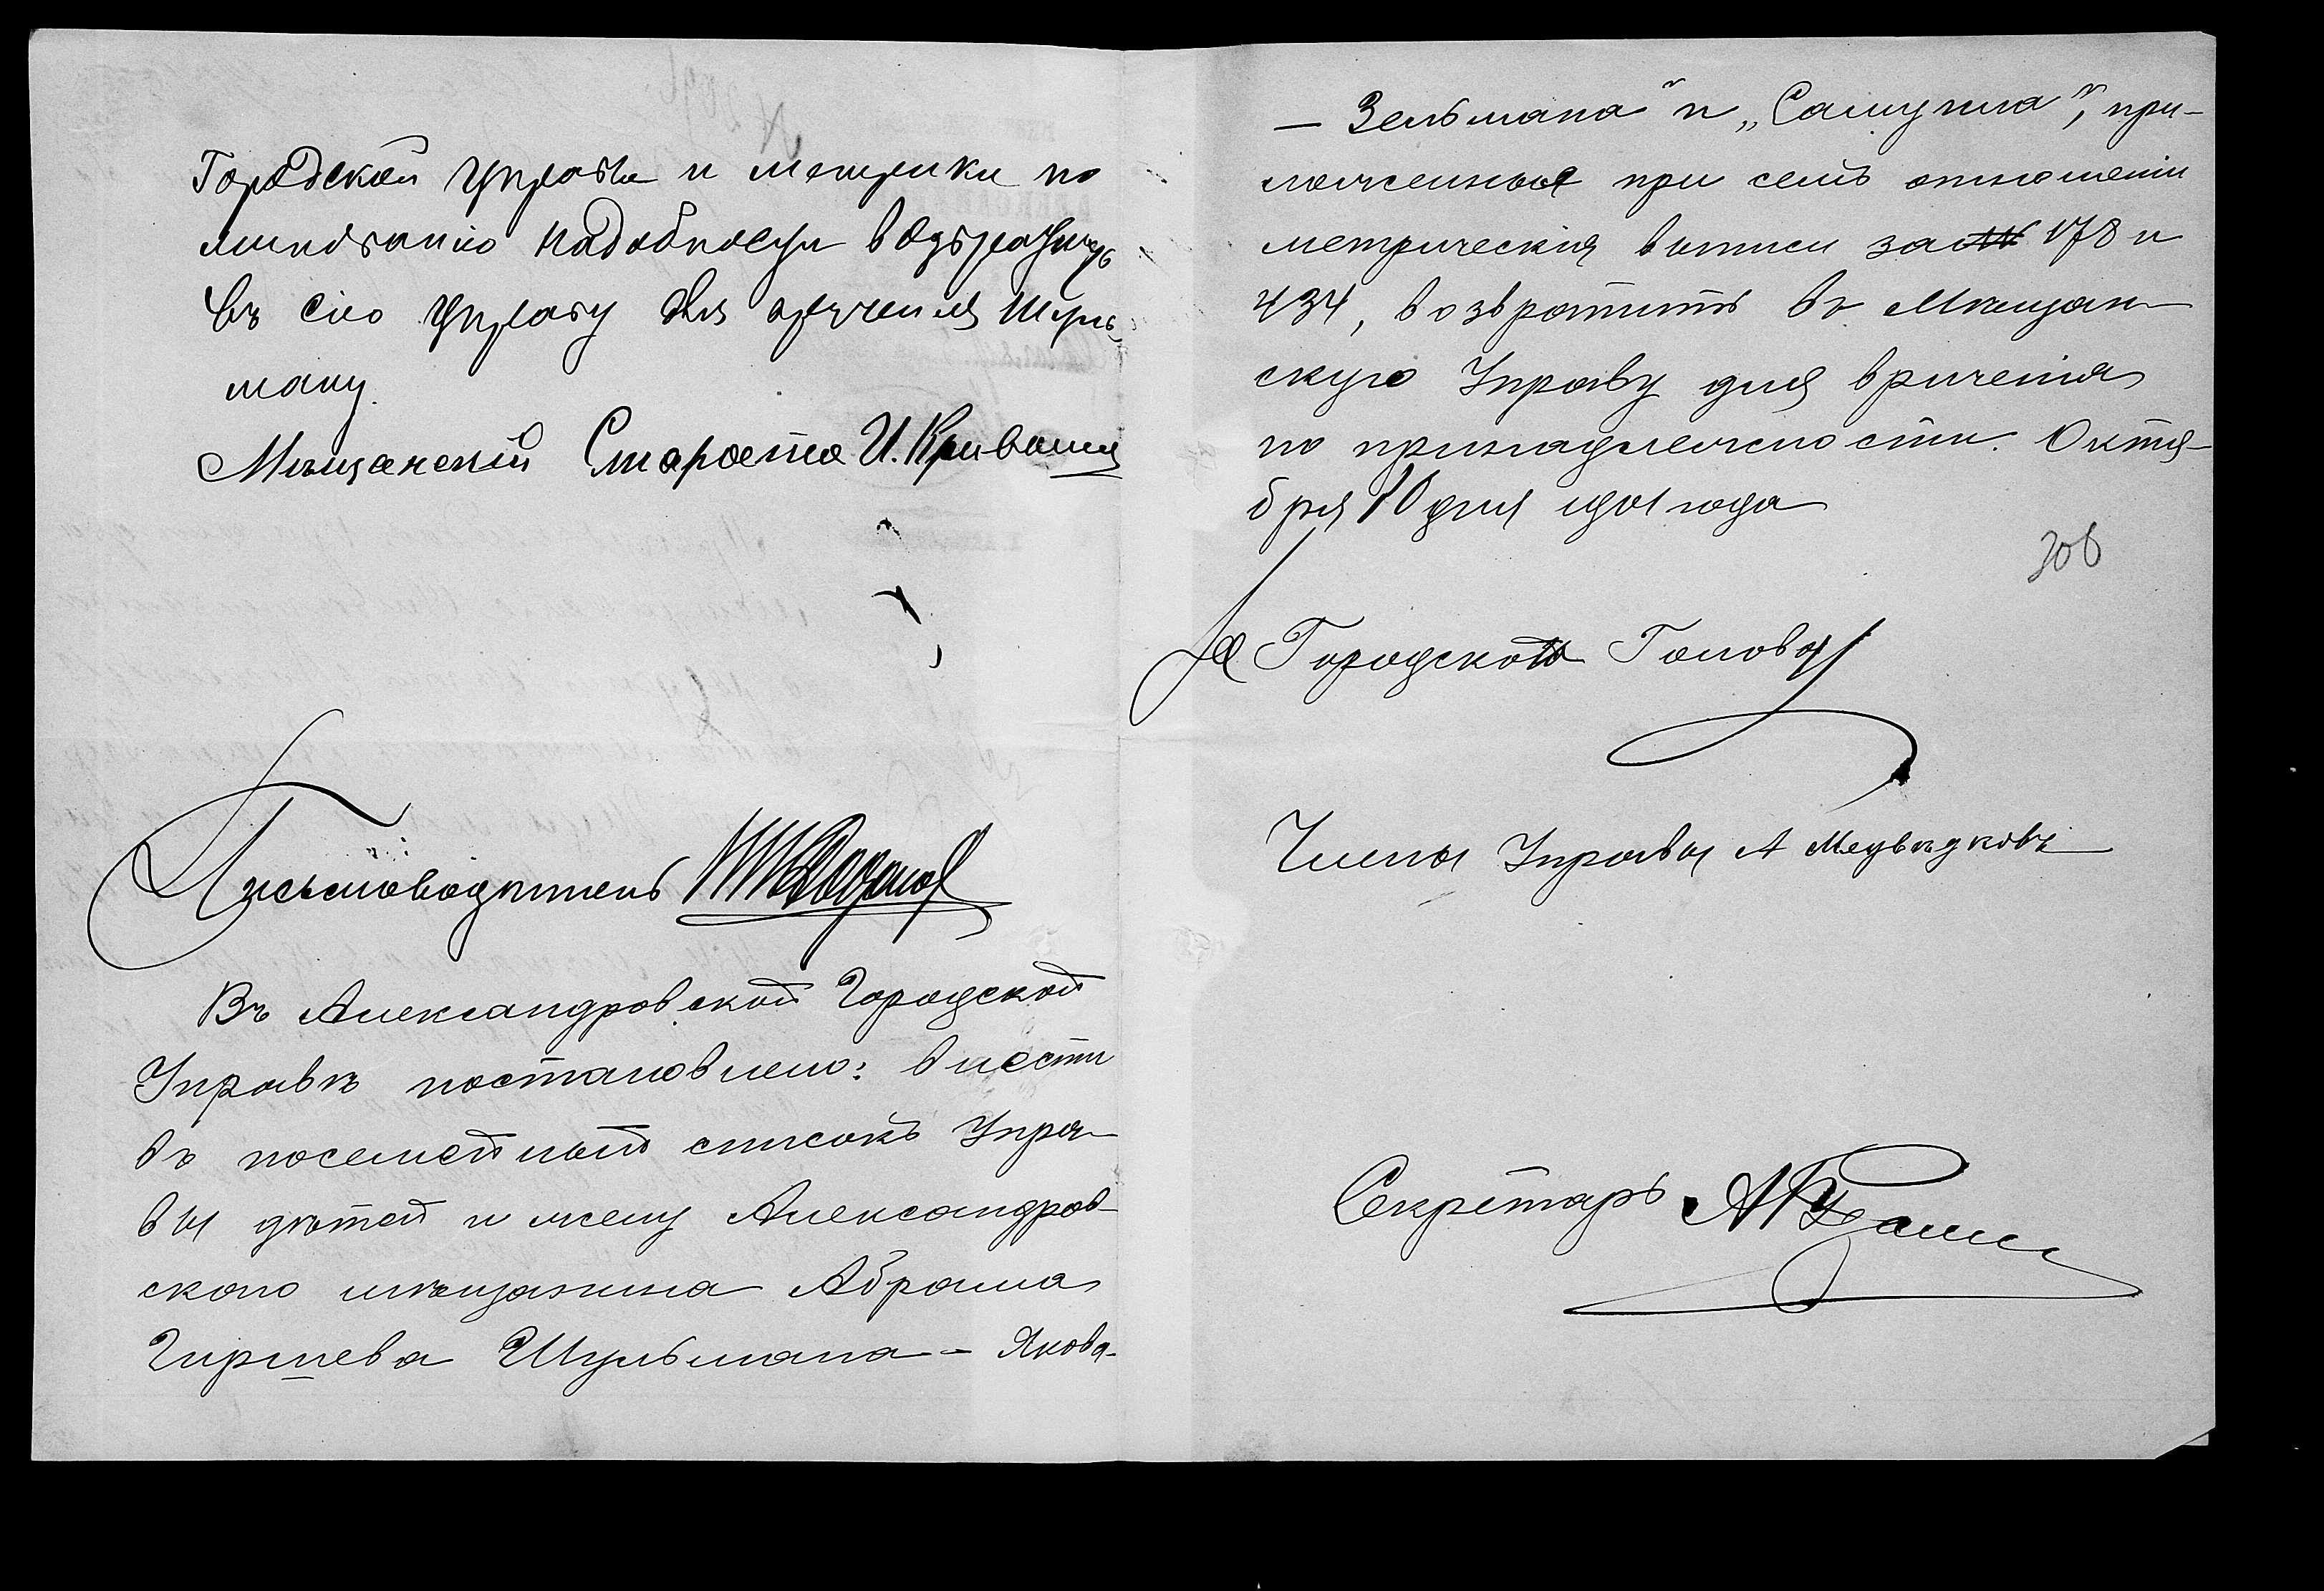 Городской Управы и метрики по
минованію надобности возвратить
въ сію Управу для врученія Шуль
ману.
Мѣщанскій Староста И. Кривоше
Письмоводитель
Въ Александровской Городской
Управѣ постановлено: внести
въ посемейный списокъ Упра-
вы дѣтей и жену Александров-
скаго мѣщанина Абрама
Гиршева Шульмана - Якова-
- Зельмана" и „Самуила", при-
ложенныя при семъ отношеніи
метрическія выписи за № 178 и
434, возвратить въ Мѣщан-
скую Управу для врученія
по принадлежности. Октя-
бря 10 дня 1901 года
306
Городского Голову
Члены Управы А Медвѣдковъ
Секретарь